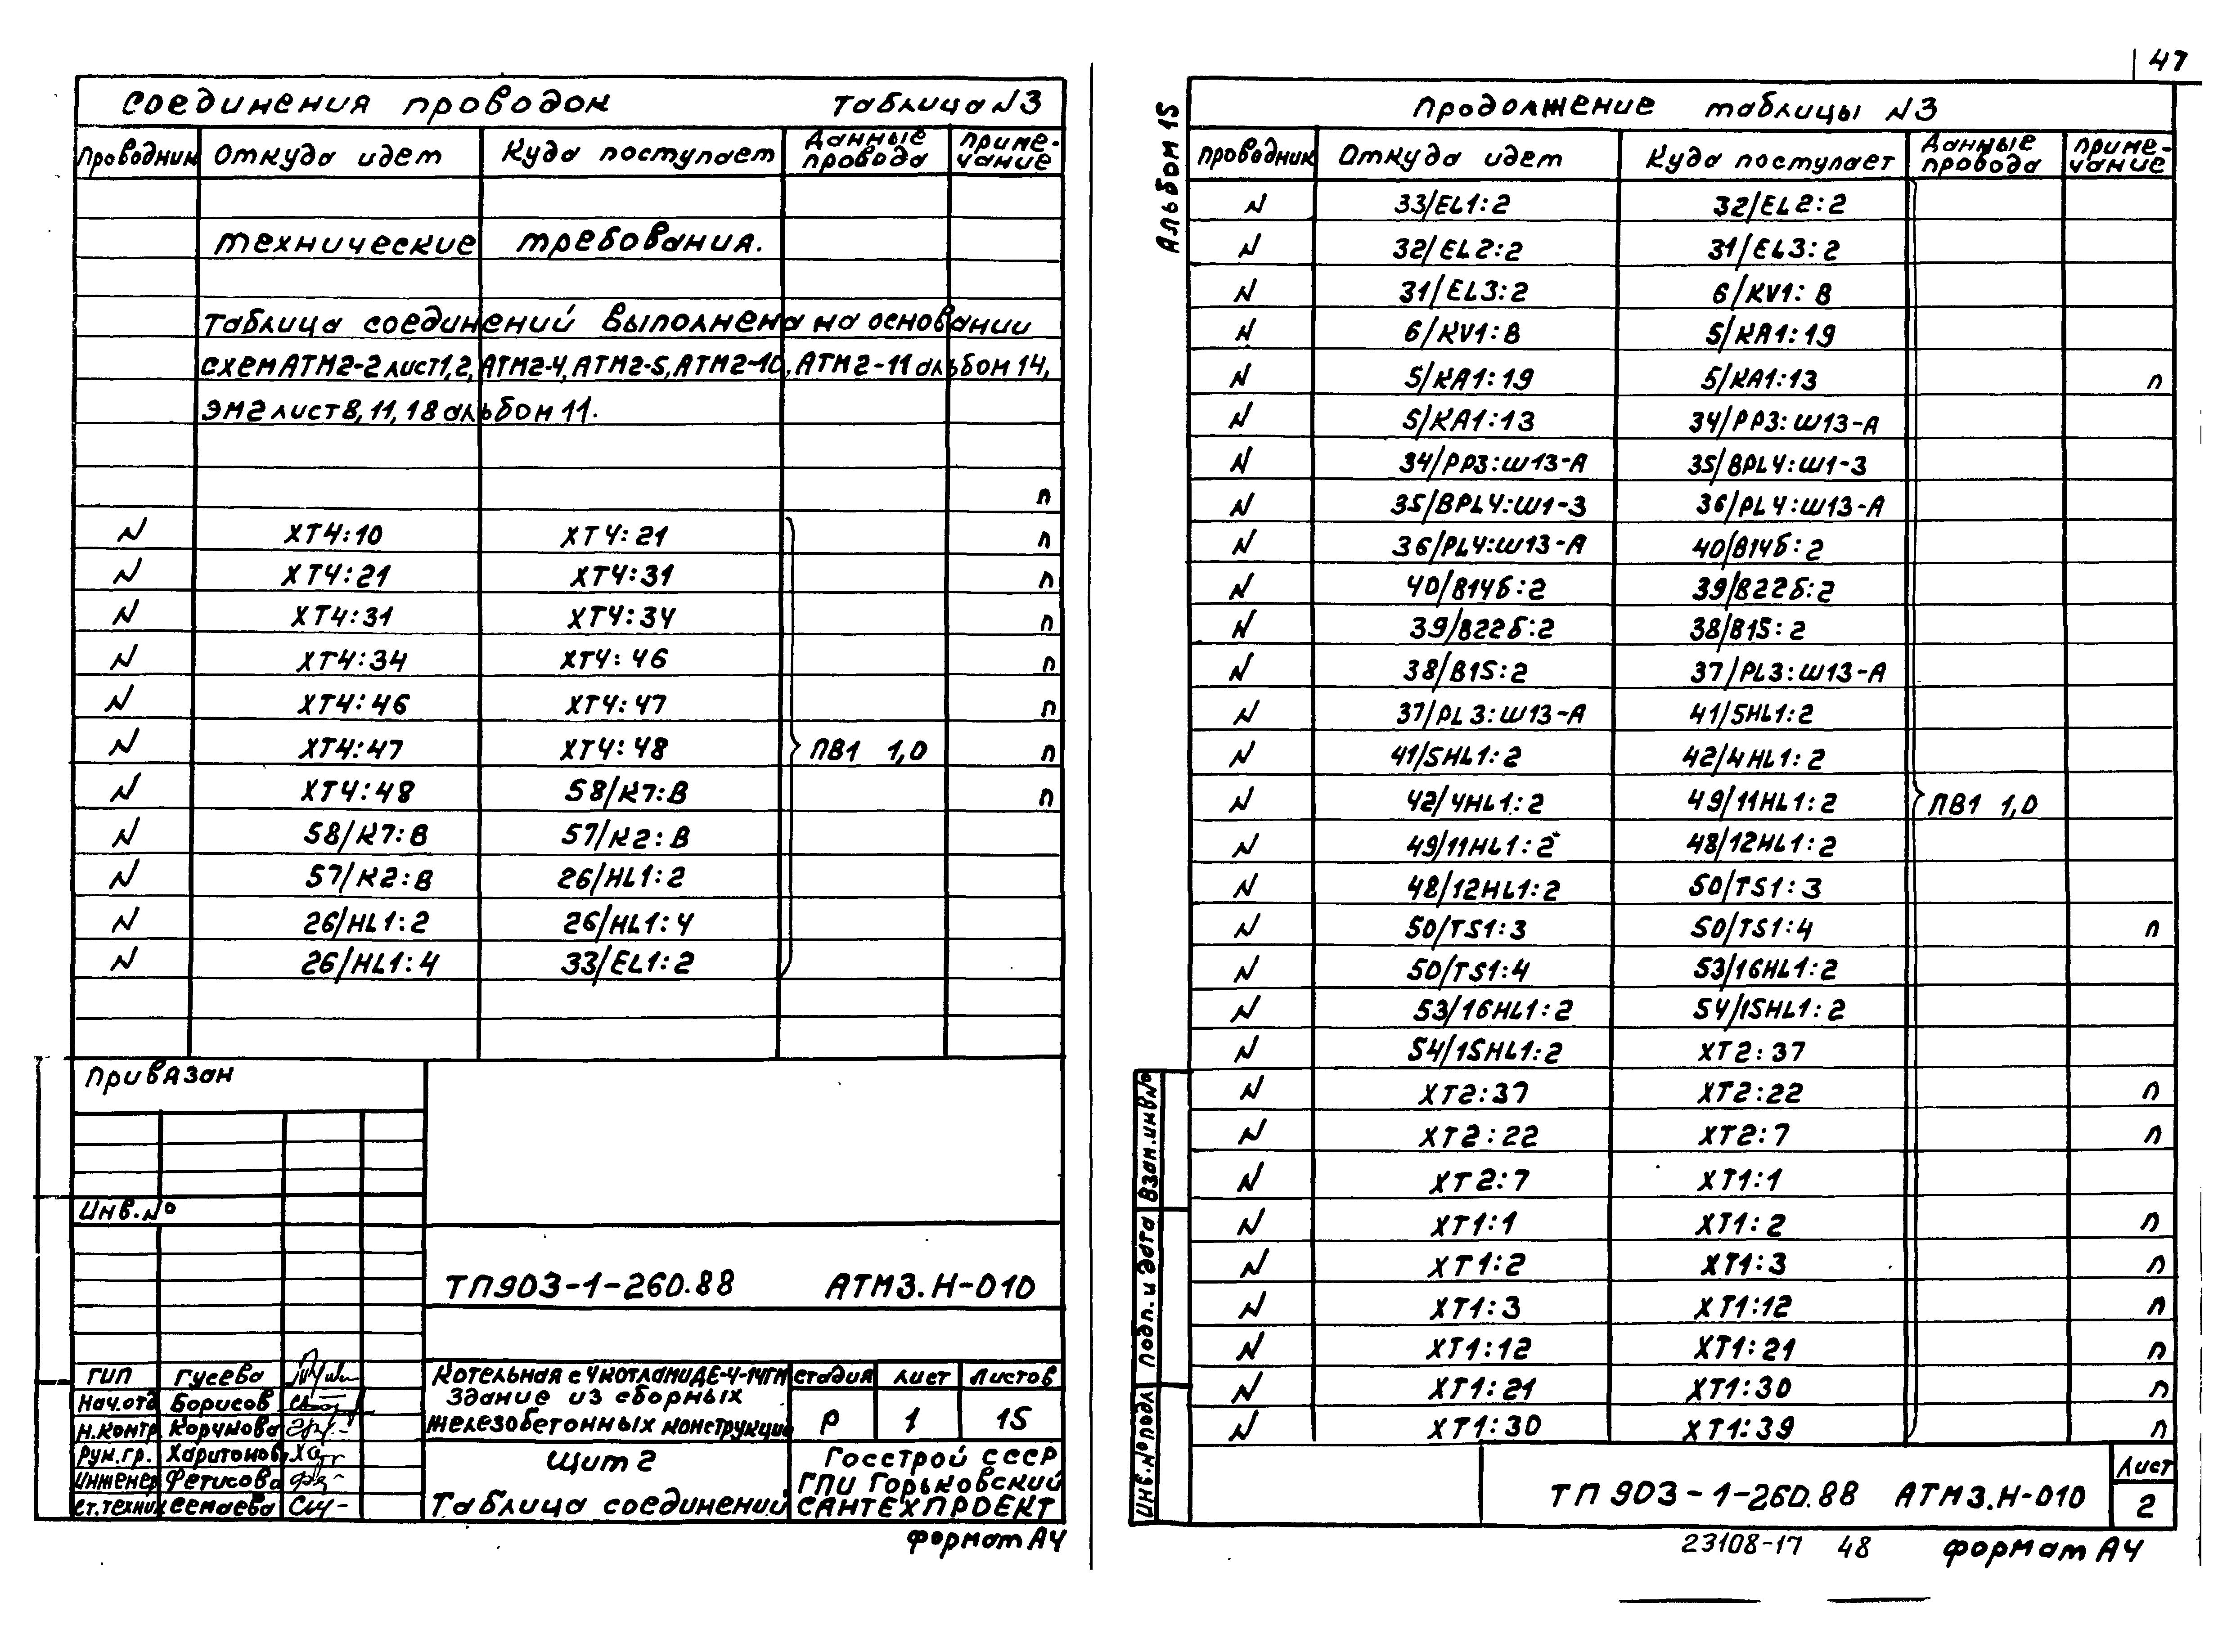 47
Соединения проводок Таблица N3
Проводник Откуда идет Куда поступает Данные провода Примечание
Технические требования.
Таблица соединений выполнена на основании
схем АТМ2-2 лист 1,2, АТМ2-4, АТМ2-5, АТМ2-10, АТМ2-11 альбом 14,
ЭМ2 лист 8, 11, 18 альбом 11.
п
N ХТ4:10 ХТ4:21 п
N ХТ4:21 ХТ4:31 п
N ХТ4:31 ХТ4:34 п
N ХТ4:34 ХТ4:46 п
N ХТ4:46 ХТ4:47 п
N ХТ4:47 ХТ4:48 ПВ1 1,0 п
N ХТ4:48 58/К7:В п
N 58/К7:В 57/К2:В
N 57/К2:В 26/HL1:2
N 26/HL1:2 26/HL1:4
N 26/HL1:4 33/EL1:2
Привязан
Инв.№
ТП 903-1-260.88 АТМ3.Н-010
ГИП Гусева
Нач.отд Борисов
Н.контр Корунова
Рук.гр. Харитонов
Инженер Фетисова
Ст.техник Семаева
Котельная с 4 котлами ДЕ-4-14ГМ
Здание из сборных
железобетонных конструкций
Стадия Лист Листов
Р 1 15
Щит 2
Таблица соединений
Госстрой СССР
ГПИ Горьковский
САНТЕХПРОЕКТ
Формат А4
Альбом 15
Продолжение таблицы N3
Проводник Откуда идет Куда поступает Данные провода Примечание
N 33/EL1:2 32/EL2:2
N 32/EL2:2 31/EL3:2
N 31/EL3:2 6/KV1:В
N 6/KV1:В 5/КА1:19
N 5/КА1:19 5/КА1:13 п
N 5/КА1:13 34/РР3:Ш13-А
N 34/РР3:Ш13-А 35/ВРL4:Ш1-3
N 35/ВРL4:Ш1-3 36/РL4:Ш13-А
N 36/РL4:Ш13-А 40/В14б:2
N 40/В14б:2 39/В22б:2
N 39/В22б:2 38/В15:2
N 38/В15:2 37/РL3:Ш13-А
N 37/РL3:Ш13-А 41/5HL1:2
N 41/5HL1:2 42/4HL1:2
N 42/4HL1:2 49/11HL1:2 ПВ1 1,0
N 49/11HL1:2 48/12HL1:2
N 48/12HL1:2 50/TS1:3
N 50/TS1:3 50/TS1:4 п
N 50/TS1:4 53/16HL1:2
N 53/16HL1:2 54/15HL1:2
N 54/15HL1:2 ХТ2:37
N ХТ2:37 ХТ2:22 п
N ХТ2:22 ХТ2:7 п
N ХТ2:7 ХТ1:1
N ХТ1:1 ХТ1:2 п
N ХТ1:2 ХТ1:3 п
N ХТ1:3 ХТ1:12 п
N ХТ1:12 ХТ1:21 п
N ХТ1:21 ХТ1:30 п
N ХТ1:30 ХТ1:39 п
Взам.инв№
Подп. и дата
Инв.№подл
ТП 903-1-260.88 АТМ3.Н-010
Лист
2
23108-17 48 Формат А4